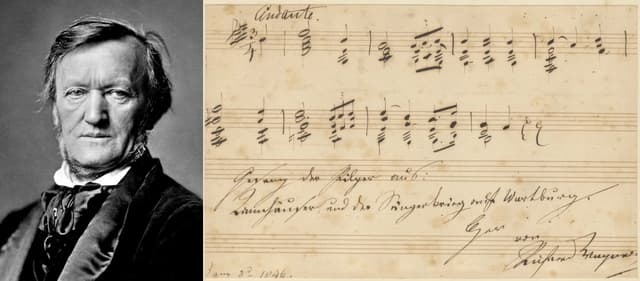 Andante.
Gesang der Pilger aus:
Tannhäuser und der Sängerkrieg auf Wartburg.
von
Richard Wagner.